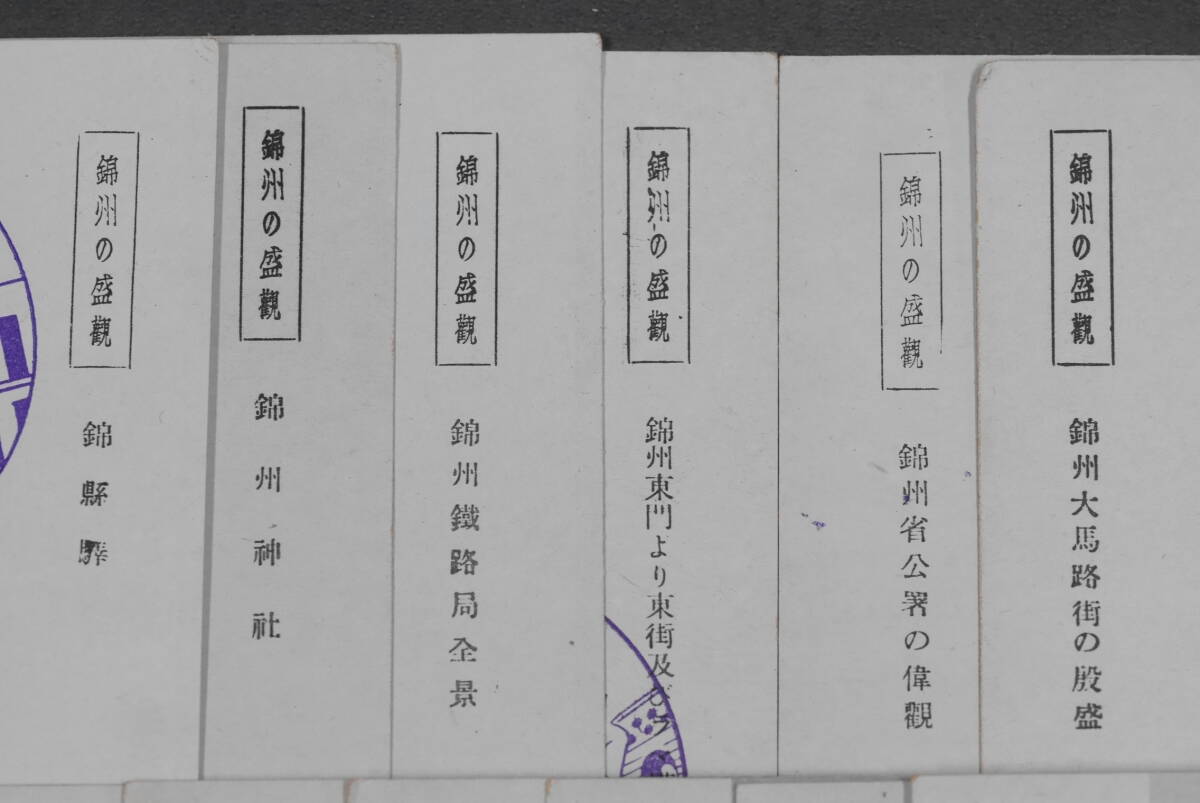 錦州の盛觀
錦州大馬路街の殷盛
錦州の盛觀
錦州省公署の偉觀
錦州の盛觀
錦州東門より東街及び
錦州の盛觀
錦州鐵路局全景
錦州の盛觀
錦州神社
錦州の盛觀
錦縣驛